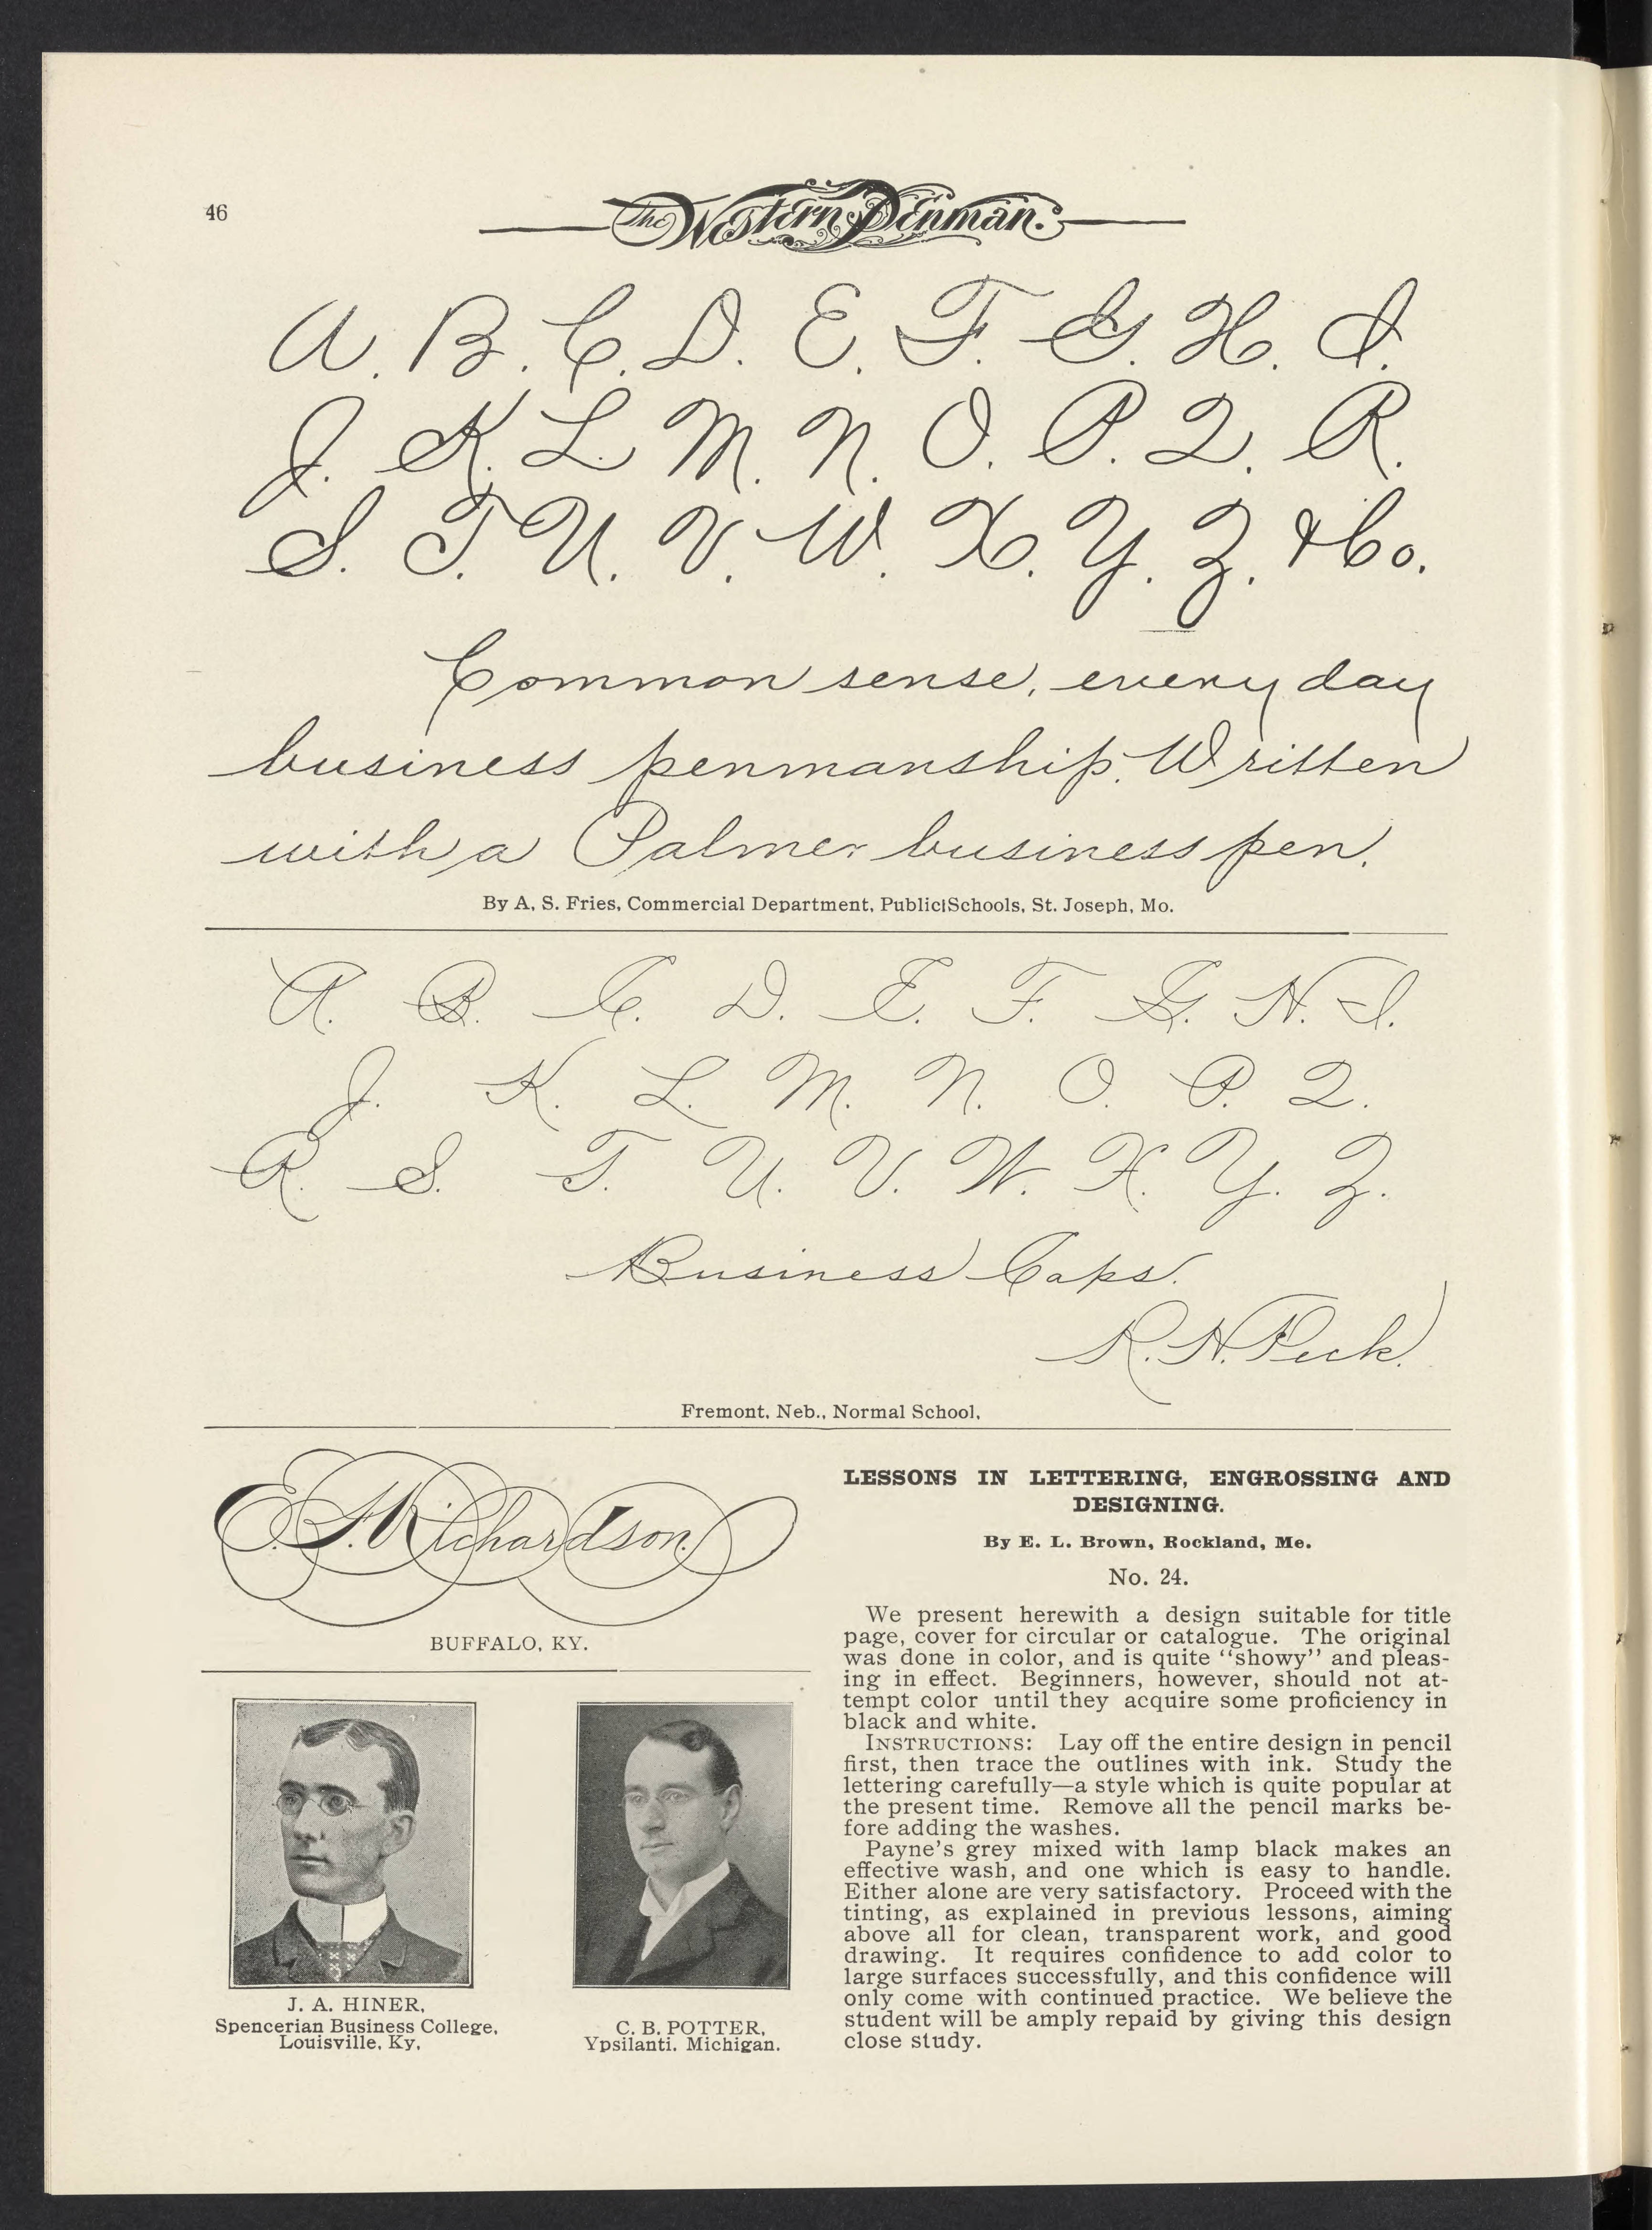 46
The Western Penman.
A. B. C. D. E. F. G. H. I.
J. K. L. M. N. O. P. Q. R.
S. T. U. V. W. X. Y. Z. & Co.
Common sense, every day
business penmanship. Written
with a Palmer business pen.
By A. S. Fries, Commercial Department, Public Schools, St. Joseph, Mo.
A. B. C. D. E. F. G. H. I.
J. K. L. M. N. O. P. Q.
R. S. T. U. V. W. X. Y. Z.
Business Caps.
R. H. Peck.
Fremont, Neb., Normal School.
E. S. Richardson.
BUFFALO, KY.
J. A. HINER,
Spencerian Business College,
Louisville, Ky.
C. B. POTTER,
Ypsilanti, Michigan.
LESSONS IN LETTERING, ENGROSSING AND
DESIGNING.
By E. L. Brown, Rockland, Me.
No. 24.
We present herewith a design suitable for title
page, cover for circular or catalogue. The original
was done in color, and is quite "showy" and pleas-
ing in effect. Beginners, however, should not at-
tempt color until they acquire some proficiency in
black and white.
INSTRUCTIONS: Lay off the entire design in pencil
first, then trace the outlines with ink. Study the
lettering carefully—a style which is quite popular at
the present time. Remove all the pencil marks be-
fore adding the washes.
Payne's grey mixed with lamp black makes an
effective wash, and one which is easy to handle.
Either alone are very satisfactory. Proceed with the
tinting, as explained in previous lessons, aiming
above all for clean, transparent work, and good
drawing. It requires confidence to add color to
large surfaces successfully, and this confidence will
only come with continued practice. We believe the
student will be amply repaid by giving this design
close study.